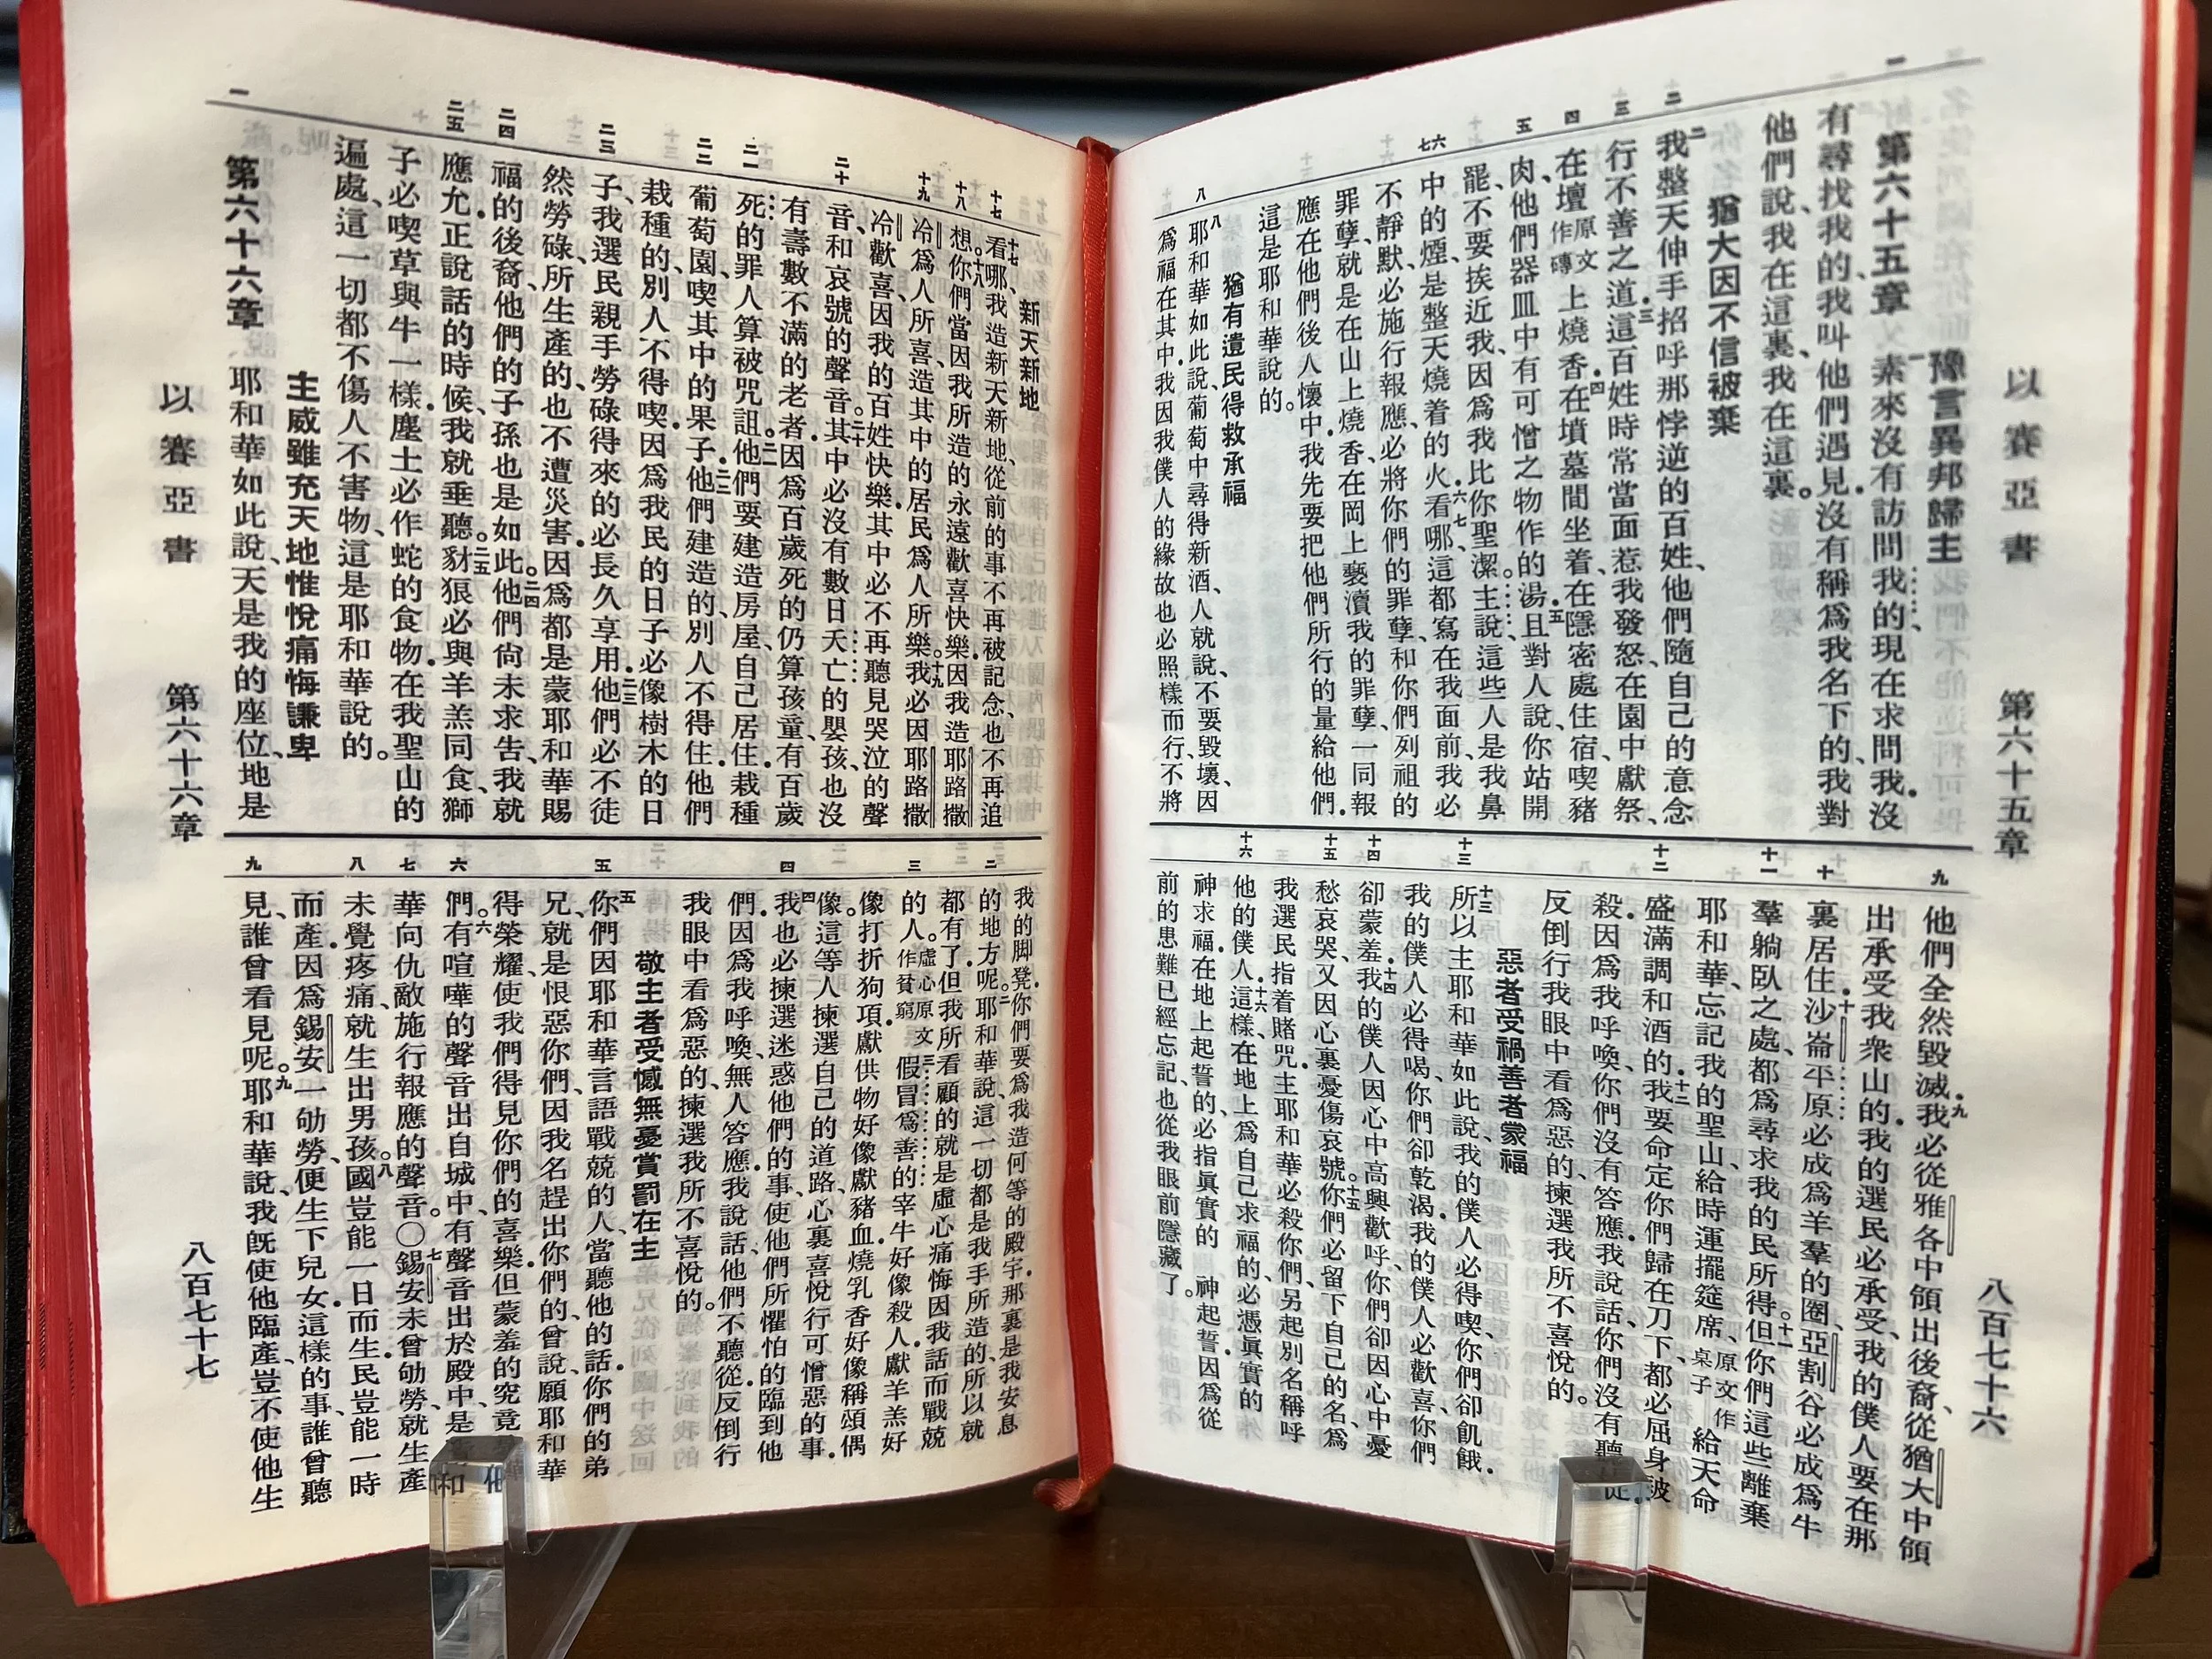 以賽亞書 第六十五章 八百七十六
一 二 三 四 五 六七 八
豫言異邦歸主
第六十五章 一素來沒有訪問我的、現在求問我．沒
有尋找我的、我叫他們遇見．沒有稱爲我名下的、我對
他們說、我在這裏、我在這裏。
猶大因不信被棄
二我整天伸手招呼那悖逆的百姓、他們隨自己的意念、
行不善之道．三這百姓時常當面惹我發怒、在園中獻祭、
在壇原文作磚上燒香．四在墳墓間坐着、在隱密處住宿、喫豬
肉、他們器皿中有可憎之物作的湯．五且對人說、你站開
罷、不要挨近我、因爲我比你聖潔。主說、這些人是我鼻
中的煙、是整天燒着的火．六七看哪、這都寫在我面前、我必
不靜默、必施行報應、必將你們的罪孽、和你們列祖的
罪孽、就是在山上燒香、在岡上褻瀆我的罪孽、一同報
應在他們後人懷中．我先要把他們所行的量給他們．
這是耶和華說的。
猶有遺民得救承福
八耶和華如此說、葡萄中尋得新酒、人就說、不要毀壞、因
爲福在其中．我因我僕人的緣故也必照樣而行、不將
九 十 十一 十二 十三 十四 十五 十六
他們全然毀滅．九我必從雅各中領出後裔、從猶大中領
出承受我衆山的．我的選民必承受、我的僕人要在那
裏居住．十沙崙平原必成爲羊羣的圈、亞割谷必成爲牛
羣躺臥之處、都爲尋求我的民所得。十一但你們這些離棄
耶和華、忘記我的聖山、給時運擺筵席、原文作桌子給天命
盛滿調和酒的．十二我要命定你們歸在刀下、都必屈身被
殺．因爲我呼喚、你們沒有答應．我說話、你們沒有聽從
反倒行我眼中看爲惡的、揀選我所不喜悅的。
惡者受禍善者蒙福
十三所以主耶和華如此說、我的僕人必得喫、你們卻飢餓．
我的僕人必得喝、你們卻乾渴．我的僕人必歡喜、你們
卻蒙羞．十四我的僕人因心中高興歡呼、你們卻因心中憂
愁哀哭、又因心裏憂傷哀號。十五你們必留下自己的名、爲
我選民指着賭咒．主耶和華必殺你們、另起別名稱呼
他的僕人．十六這樣、在地上爲自己求福的、必憑眞實的
神求福．在地上起誓的、必指眞實的 神起誓．因爲從
前的患難已經忘記、也從我眼前隱藏了。
十七 十八 十九 二十 二一 二二 二三 二四 二五 一
新天新地
十七看哪、我造新天新地、從前的事不再被記念、也不再追
想。十八你們當因我所造的永遠歡喜快樂．因我造耶路撒
冷爲人所喜、造其中的居民爲人所樂。十九我必因耶路撒
冷歡喜、因我的百姓快樂．其中必不再聽見哭泣的聲
音、和哀號的聲音。二十其中必沒有數日夭亡的嬰孩、也沒
有壽數不滿的老者．因爲百歲死的仍算孩童、有百歲
死的罪人算被咒詛。二一他們要建造房屋、自己居住．栽種
葡萄園、喫其中的果子．二二他們建造的、別人不得住．他們
栽種的、別人不得喫．因爲我民的日子必像樹木的日
子、我選民親手勞碌得來的必長久享用．二三他們必不徒
然勞碌、所生產的、也不遭災害．因爲都是蒙耶和華賜
福的後裔、他們的子孫也是如此。二四他們尙未求告、我就
應允．正說話的時候、我就垂聽。二五豺狼必與羊羔同食、獅
子必喫草與牛一樣．塵土必作蛇的食物．在我聖山的
遍處、這一切都不傷人不害物、這是耶和華說的。
主威雖充天地惟悅痛悔謙卑
第六十六章 耶和華如此說、天是我的座位、地是
二 三 四 五 六 七 八 九
我的脚凳．你們要爲我造何等的殿宇．那裏是我安息
的地方呢。二耶和華說、這一切都是我手所造的、所以就
都有了．但我所看顧的就是虛心痛悔因我話而戰兢
的人。虛心原文作貧窮 三假冒爲善的宰牛、好像殺人．獻羊羔、好
像打折狗項．獻供物、好像獻豬血．燒乳香、好像稱頌偶
像。這等人揀選自己的道路、心裏喜悅行可憎惡的事．
四我也必揀選迷惑他們的事、使他們所懼怕的臨到他
們．因爲我呼喚、無人答應．我說話、他們不聽從．反倒行
我眼中看爲惡的、揀選我所不喜悅的。
敬主者受憾無憂賞罰在主
五你們因耶和華言語戰兢的人、當聽他的話．你們的弟
兄、就是恨惡你們、因我名趕出你們的、曾說、願耶和華
得榮耀、使我們得見你們的喜樂．但蒙羞的究竟
們。六有喧嘩的聲音出自城中、有聲音出於殿中．是
華向仇敵施行報應的聲音。〇七錫安未曾劬勞、就生產
未覺疼痛、就生出男孩。八國豈能一日而生．民豈能一時
而產．因爲錫安一劬勞、便生下兒女．這樣的事誰曾聽
見、誰曾看見呢。九耶和華說、我旣使他臨產、豈不使他生
以賽亞書 第六十六章 八百七十七